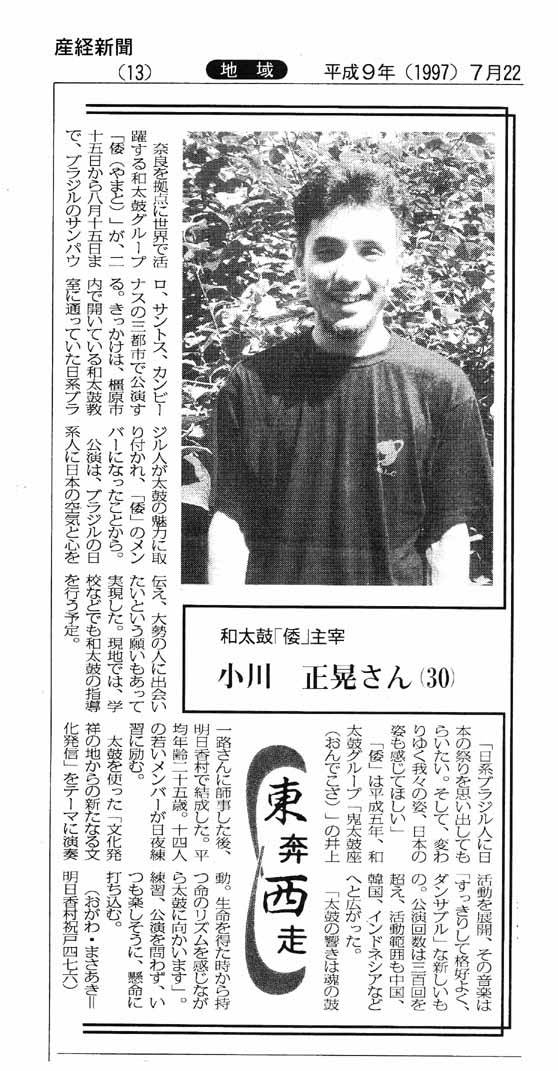 産経新聞
(13)
地域
平成9年(1997)7月22
奈良を拠点に世界で活
躍する和太鼓グループ
「倭(やまと)」が、二
十五日から八月十五日ま
で、ブラジルのサンパウ
ロ、サントス、カンピー
ナスの三都市で公演す
る。きっかけは、橿原市
内で開いている和太鼓教
室に通っていた日系ブラ
ジル人が太鼓の魅力に取
り付かれ、「倭」のメン
バーになったことから。
公演は、ブラジルの日
系人に日本の空気と心を
伝え、大勢の人に出会い
たいという願いもあって
実現した。現地では、学
校などでも和太鼓の指導
を行う予定。
和太鼓「倭」主宰
小川 正晃さん(30)
「日系ブラジル人に日
本の祭りを思い出しても
らいたい。そして、変わ
りゆく我々の姿、日本の
姿も感じてほしい」
「倭」は平成五年、和
太鼓グループ「鬼太鼓座
(おんでこざ)」の井上
一路さんに師事した後、
明日香村で結成した。平
均年齢二十五歳。十四人
の若いメンバーが日夜練
習に励む。
太鼓を使った「文化発
祥の地からの新たなる文
化発信」をテーマに演奏
活動を展開、その音楽は
「すっきりして格好よく、
ダンサブル」な新しいも
の。公演回数は三百回を
超え、活動範囲も中国、
韓国、インドネシアなど
へと広がった。
「太鼓の響きは魂の鼓
動。生命を得た時から持
つ命のリズムを感じなが
ら太鼓に向かいます」。
練習、公演を問わず、い
つも楽しそうに、懸命に
打ち込む。
(おがわ・まさあき=
明日香村祝戸四七六)
東奔西走